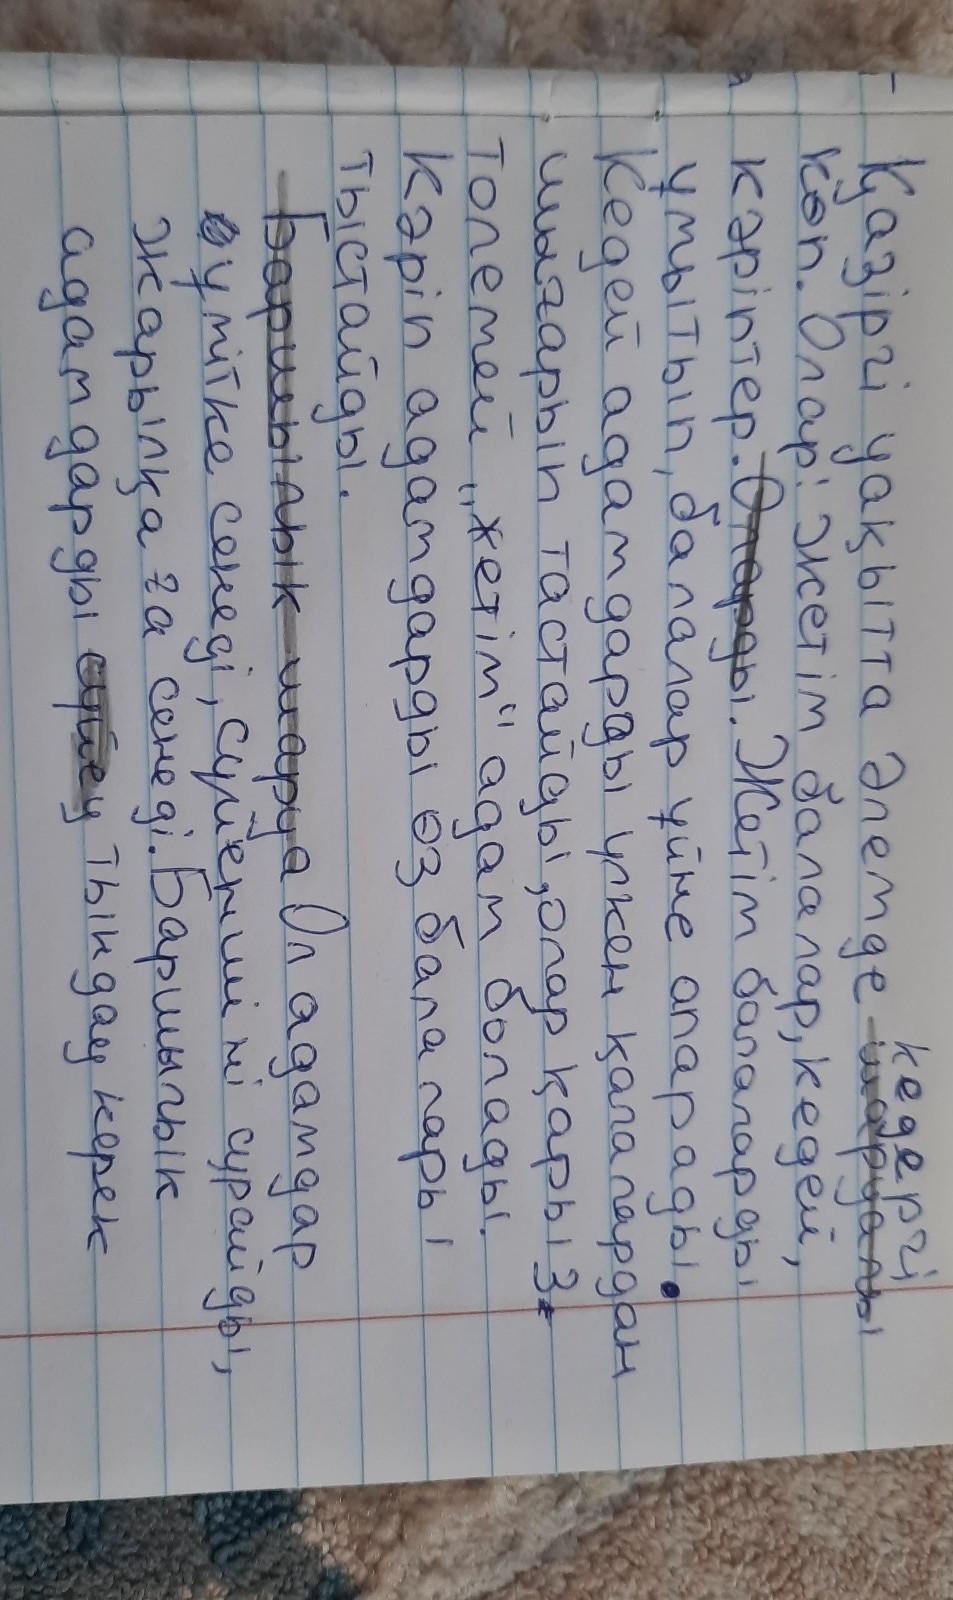 Қазіргі уақытта әлемде кедергі
көп. Олар: Жетім балалар, кедей,
кәріптер. Оларды. Жетім балаларды
ұмытып, балалар үйне апарады.
Кедей адамдарды үлкен қалалардан
шығарып тастайды, олар қарыз
төлемей "жетім" адам болады.
Кәріп адамдарды өз балалары
тыстайды.
Баршылык шаруа Ол адамдар
үмітке сенеді, сүйеніші ні сұрайды,
Жарылқа ға сенеді. Баршылык
адамдарды тындау керек